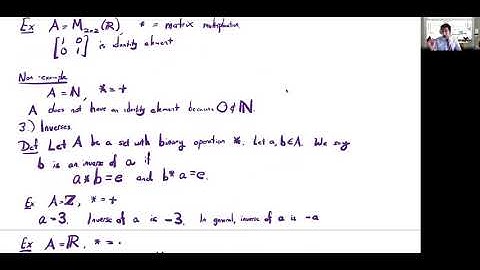 Ex A = M₂ₓ₂(ℝ), * = matrix multiplication
[1 0
0 1] is identity element
Non-example
A = ℕ, * = +
A does not have an identity element because 0 ∉ ℕ.
3.) Inverses.
Def Let A be a set with binary operation *. Let a, b ∈ A. We say
b is an inverse of a if
a * b = e and b * a = e.
Ex A = ℤ, * = +
a = 3. Inverse of a is -3. In general, inverse of a is -a
Ex A = ℝ, * = ·